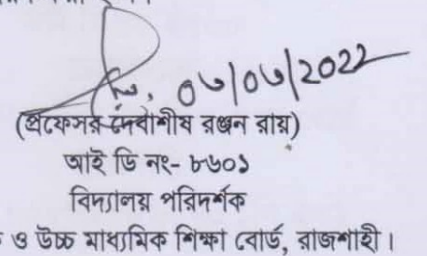 ০৬/০৬/2022
(প্রফেসর দেবাশীষ রঞ্জন রায়)
আই ডি নং- ৮৬০১
বিদ্যালয় পরিদর্শক
ও উচ্চ মাধ্যমিক শিক্ষা বোর্ড, রাজশাহী।